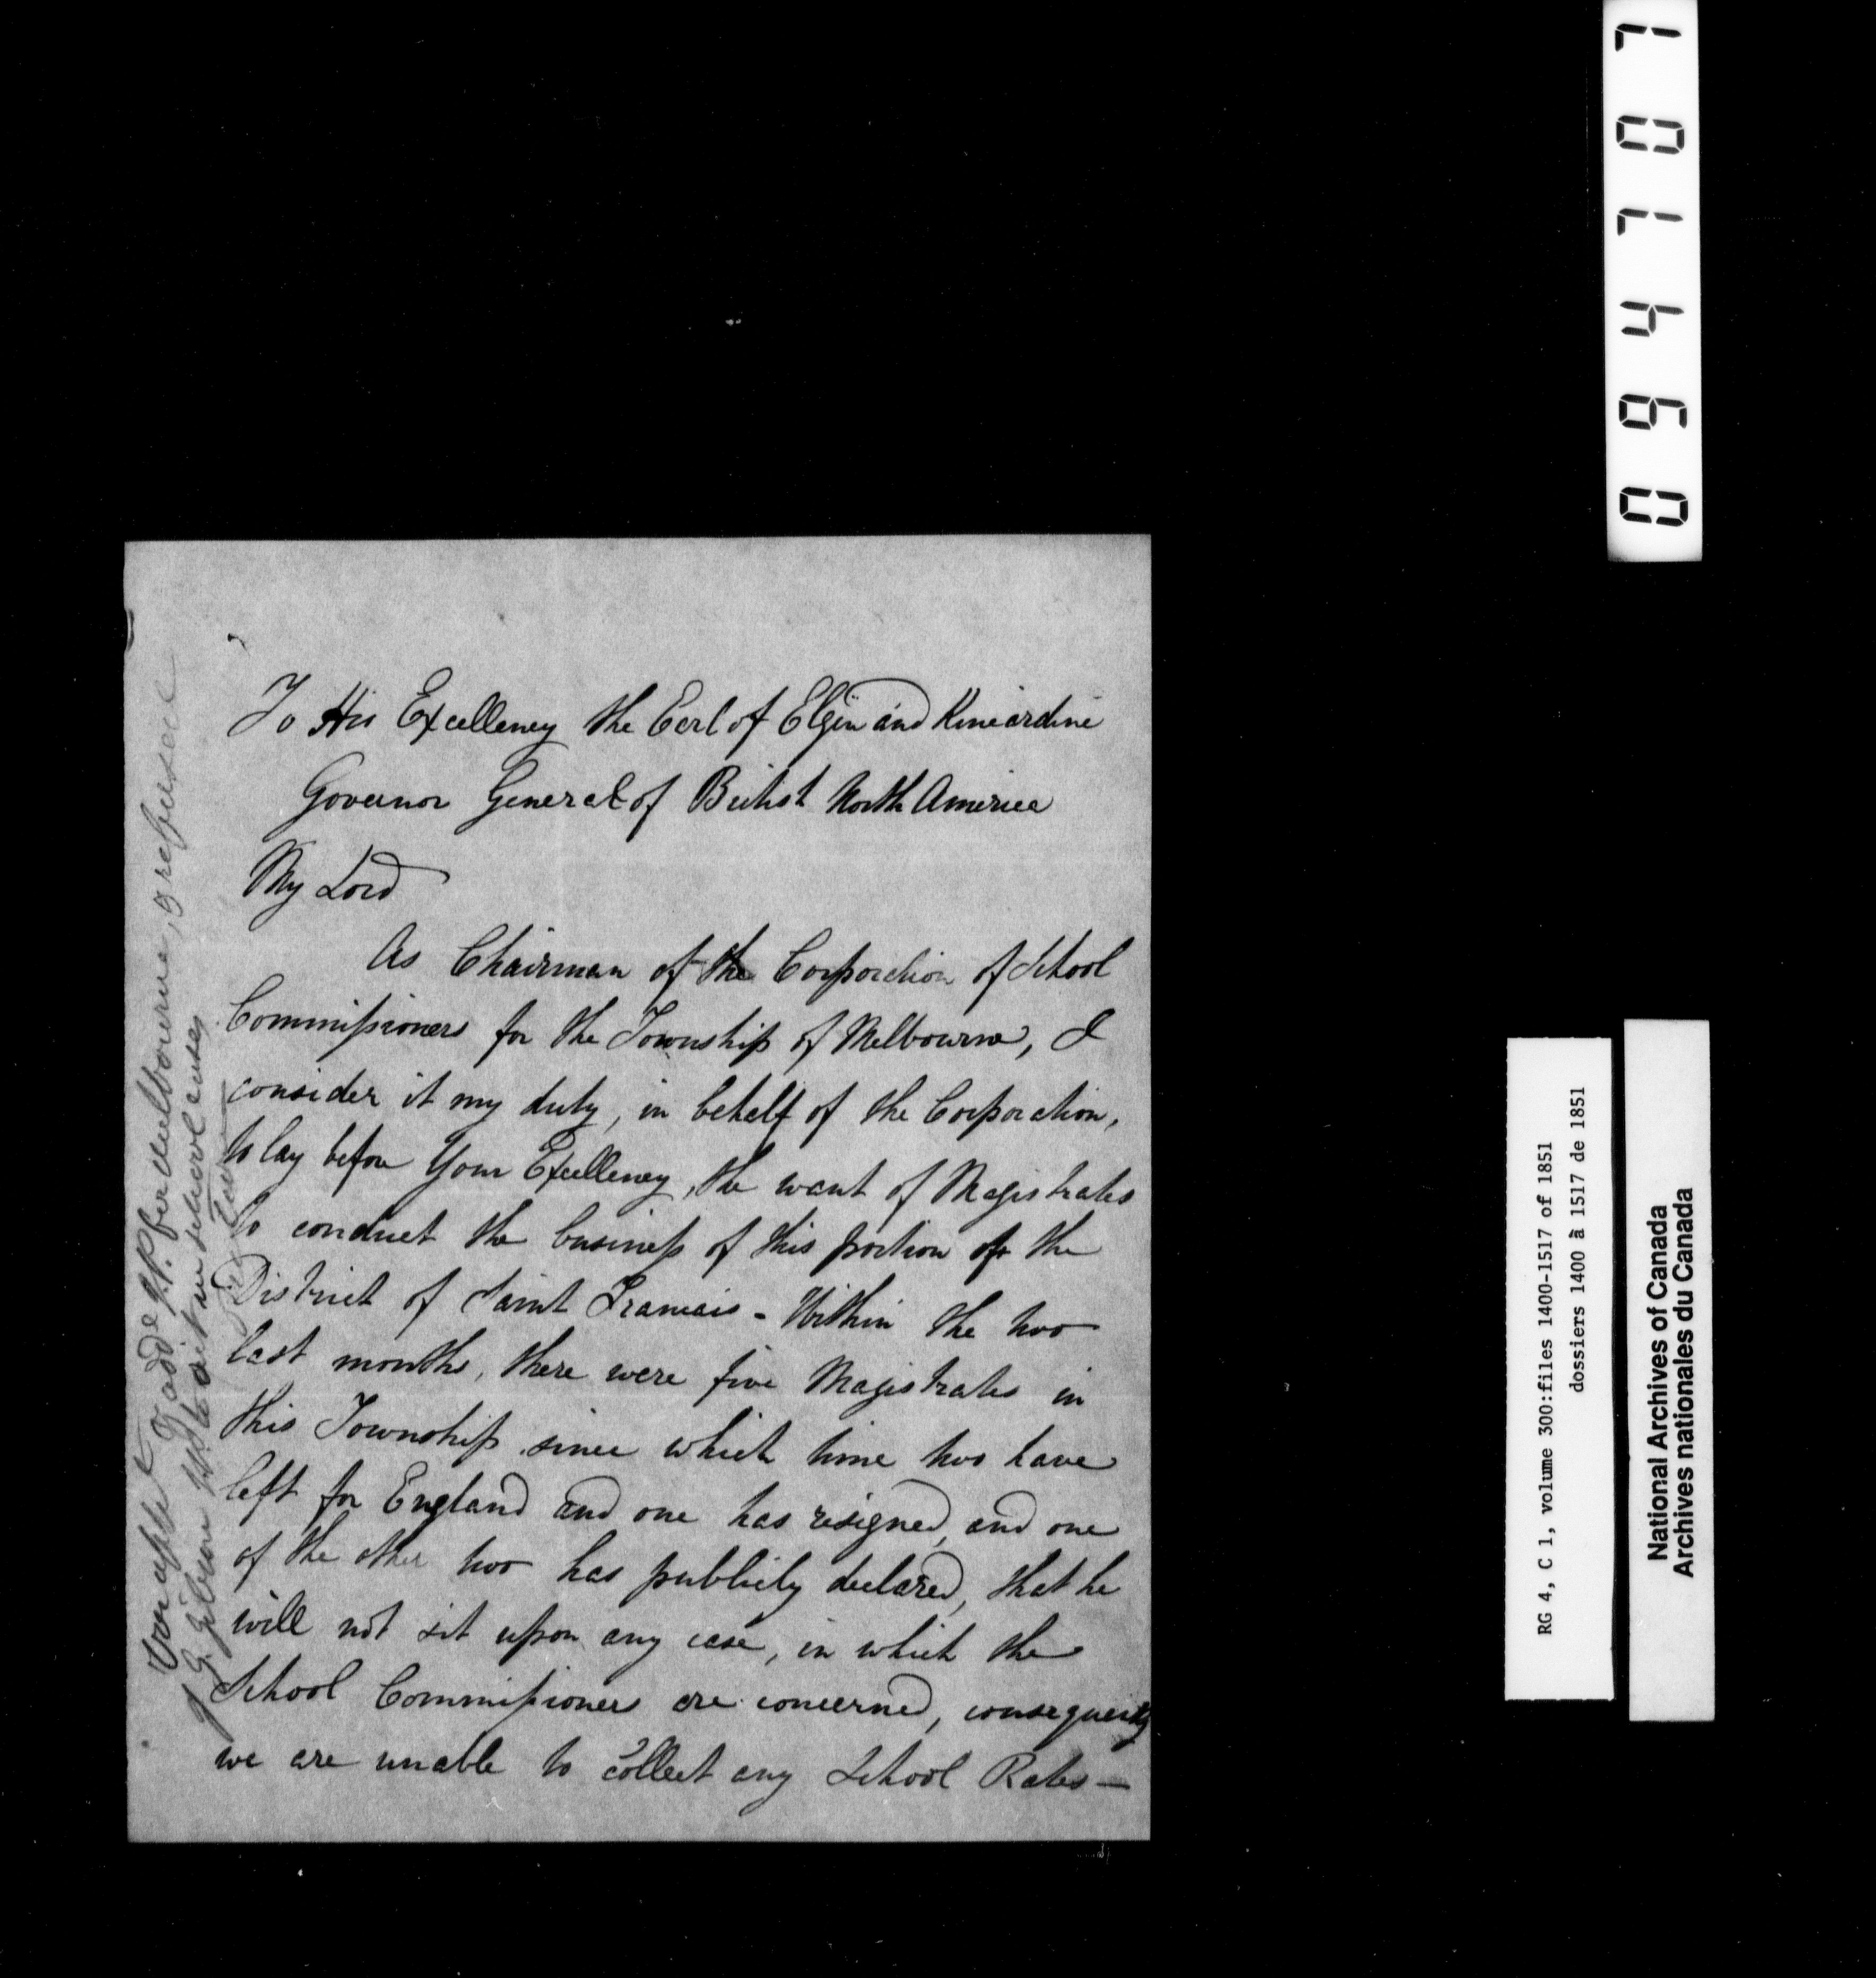 To His Excellency the Earl of Elgin and Kincardine
Governor General of British North America
My Lord
As Chairman of the Corporation of School
Commissioners for the Township of Melbourne, I
consider it my duty, in behalf of the Corporation,
to lay before Your Excellency, the want of Magistrates
to conduct the business of this portion of the
District of Saint Francais - Within the two
last months, there were five Magistrates in
this Township since which time two have
left for England and one has resigned, and one
of the other two has publicly declared, that he
will not sit upon any case, in which the
School Commissioners are concerned, consequently
we are unable to collect any School Rates —
of add J.P. for Melbourne, & refusal
of to sit in school cases
094707
RG 4, C 1, volume 300:files 1400-1517 of 1851
dossiers 1400 à 1517 de 1851
National Archives of Canada
Archives nationales du Canada